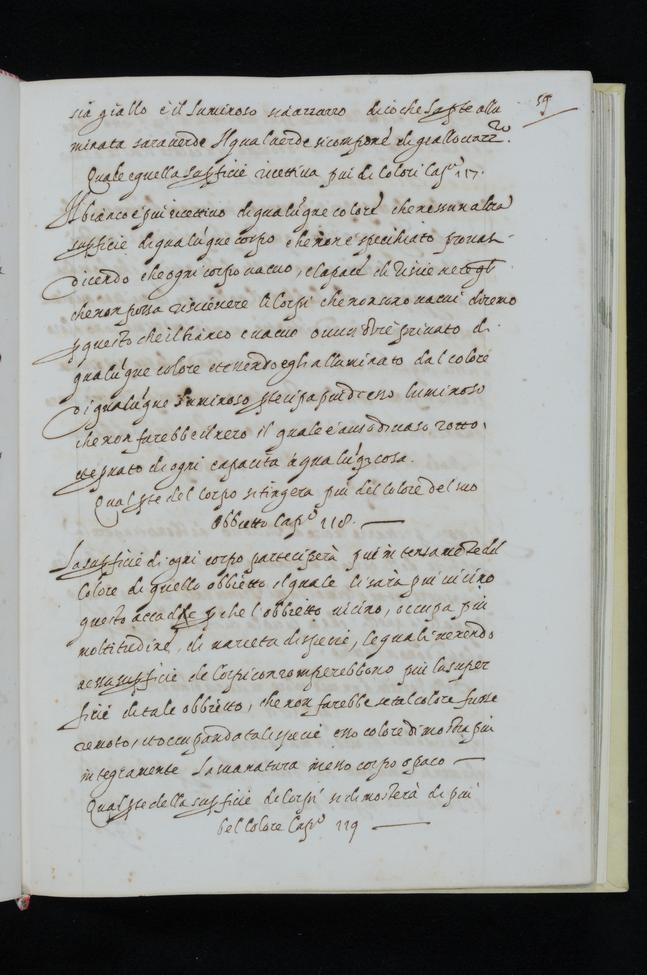 59
sia giallo e il luminoso sia azzurro dico che la pte allu
minata sara verde Il qual verde si compone di giallo et azz.ro
Quale e quella supficie ricettiva piu di colori Cap.o 117.
Il bianco e piu ricettivo di qualuque colore che nessun altra
supficie di qualuque corpo che non e specchiato provasi
dicendo che ogni corpo vacuo, e capace di ricevere
che non possa ricevere li corpi che non sono vacui diremo
p questo che il bianco e vacuo privato di
qualuque colore et essendo egli alluminato dal colore
di qualuque luminoso ptecipa piu d esso luminoso
che non farebbe il nero il quale e a uso di vaso rotto,
che e privato di ogni capacita a qualuq3 cosa.
Qual pte del corpo si tingera piu del colore del suo
obbietto Cap.o 118.
La supficie di ogni corpo partecipera piu intensamete del
colore di quello obbietto, il quale li sara piu vicino
questo accade p che l obbietto vicino, occupa piu
moltitudine, di varieta di specie, le quali venendo
a essa supficie de corpi corromperebbono piu la super
ficie di tale obbietto, che non farebbe se tal colore fusse
remoto, et occupando tali specie esso colore dimostra piu
integramente la sua natura in esso corpo opaco
Qual pte della supficie di corpi si dimostera di piu
bel colore Cap.o 119